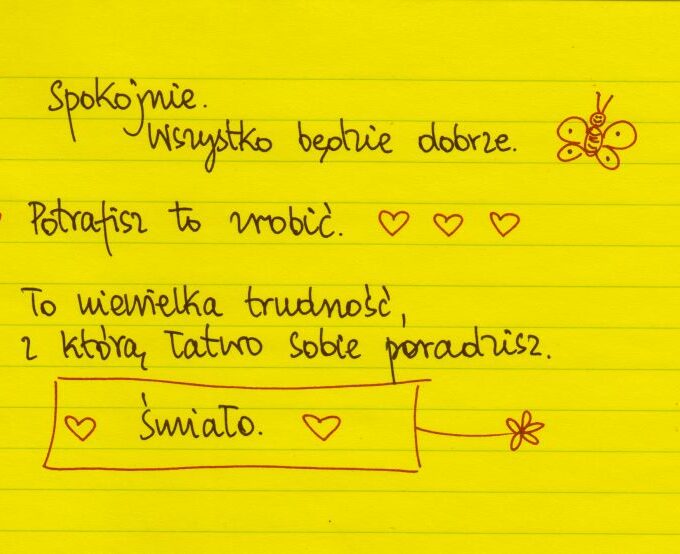 Spokojnie.
Wszystko będzie dobrze.
Potrafisz to zrobić.
To niewielka trudność,
z którą łatwo sobie poradzisz.
Śmiało.